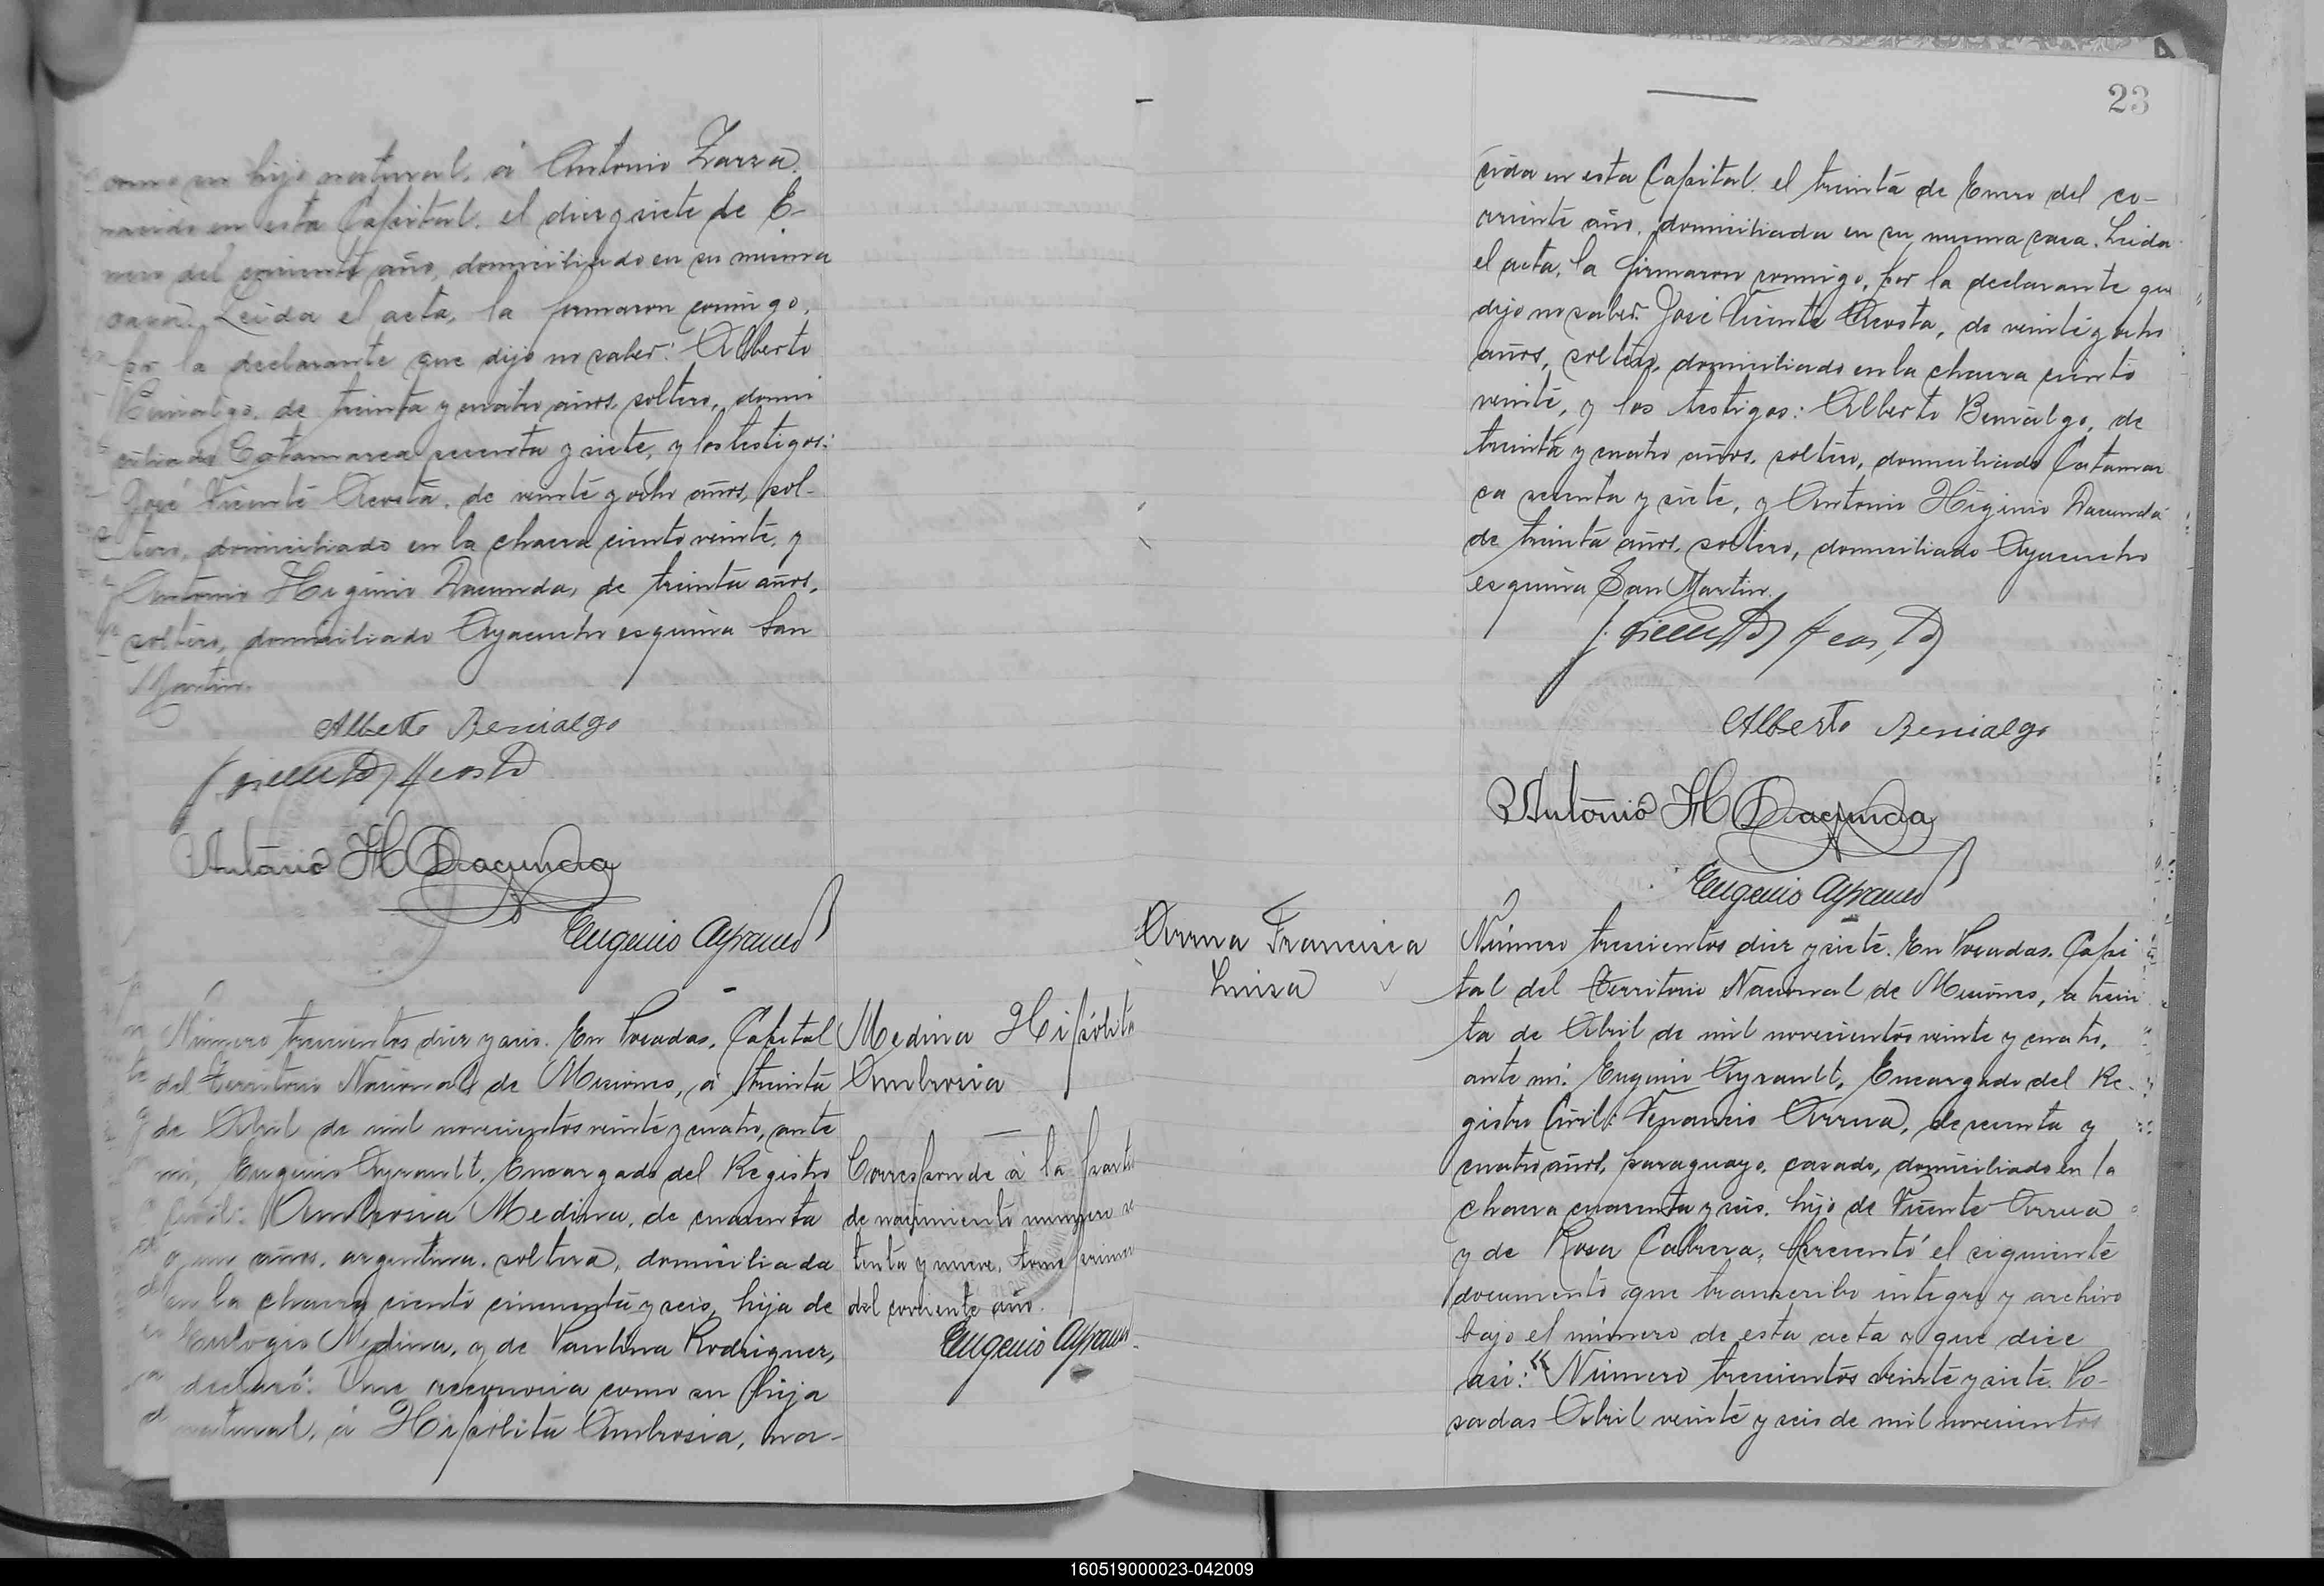 como su hijo natural, á Antonio Zarza.
nacido en esta Capital, el diez y siete de E-
nero del corriente año, domiciliado en su misma
casa. Leida el acta, la firmaron conmigo,
por la declarante que dijo no saber: Alberto
Benialgo, de treinta y cuatro años, soltero, domi
ciliado Catamarca sesenta y siete, y los testigos:
José Vicente Acosta, de veinte y ocho años, sol-
tero, domiciliado en la chacra ciento veinte, y
Antonio Higinio Dacunda, de treinta años,
soltero, domiciliado Ayacucho esquina San
Martin.
Alberto Benialgo
J. Vicente Acosta
Antonio H Dacunda
Eugenio Ayrault
Número trescientos diez y seis. En Posadas, Capital
del Territorio Nacional de Misiones, á treinta
de Abril de mil novecientos veinte y cuatro, ante
mi, Eugenio Ayrault, Encargado del Registro
Civil: Ambrosia Medina, de cuarenta
y un años, argentina, soltera, domiciliada
en la chacra ciento cincuenta y seis, hija de
Eulogio Medina, y de Paulina Rodriguez,
declaró: Que reconocia como su hija
natural, á Hipólita Ambrosia, na-
Medina Hipólita
Ambrosia
Corresponde á la parti
de nacimiento numero se
tenta y nueve, tomo primer
del corriente año.
Eugenio Ayrault
23
cida en esta Capital, el treinta de Enero del co-
rriente año, domiciliada en su misma casa. Leida
el acta, la firmaron conmigo, por la declarante que
dijo no saber: José Vicente Acosta, de veinte y ocho
años, soltero, domiciliado en la chacra ciento
veinte, y los testigos: Alberto Benialgo, de
treinta y cuatro años, soltero, domiciliado Catamar
ca sesenta y siete, y Antonio Higinio Dacunda
de treinta años, soltero, domiciliado Ayacucho
esquina San Martin.
J. Vicente Acosta
Alberto Benialgo
Antonio H Dacunda
Eugenio Ayrault
Arrua Francisca
Luisa
Número trescientos diez y siete. En Posadas, Capi
tal del Territorio Nacional de Misiones, a trein
ta de Abril de mil novecientos veinte y cuatro,
ante mi: Eugenio Ayrault, Encargado del Re-
gistro Civil: Venancio Arrua, de sesenta y
cuatro años, paraguayo, casado, domiciliado en la
chacra cuarenta y seis, hijo de Vicente Arrua
y de Rosa Cabrera, presentó el siguiente
documento que transcribo integro y archivo
bajo el número de esta acta y que dice
asi: "Número trescientos veinte y siete. Po-
sadas Abril veinte y seis de mil novecientos
160519000023-042009